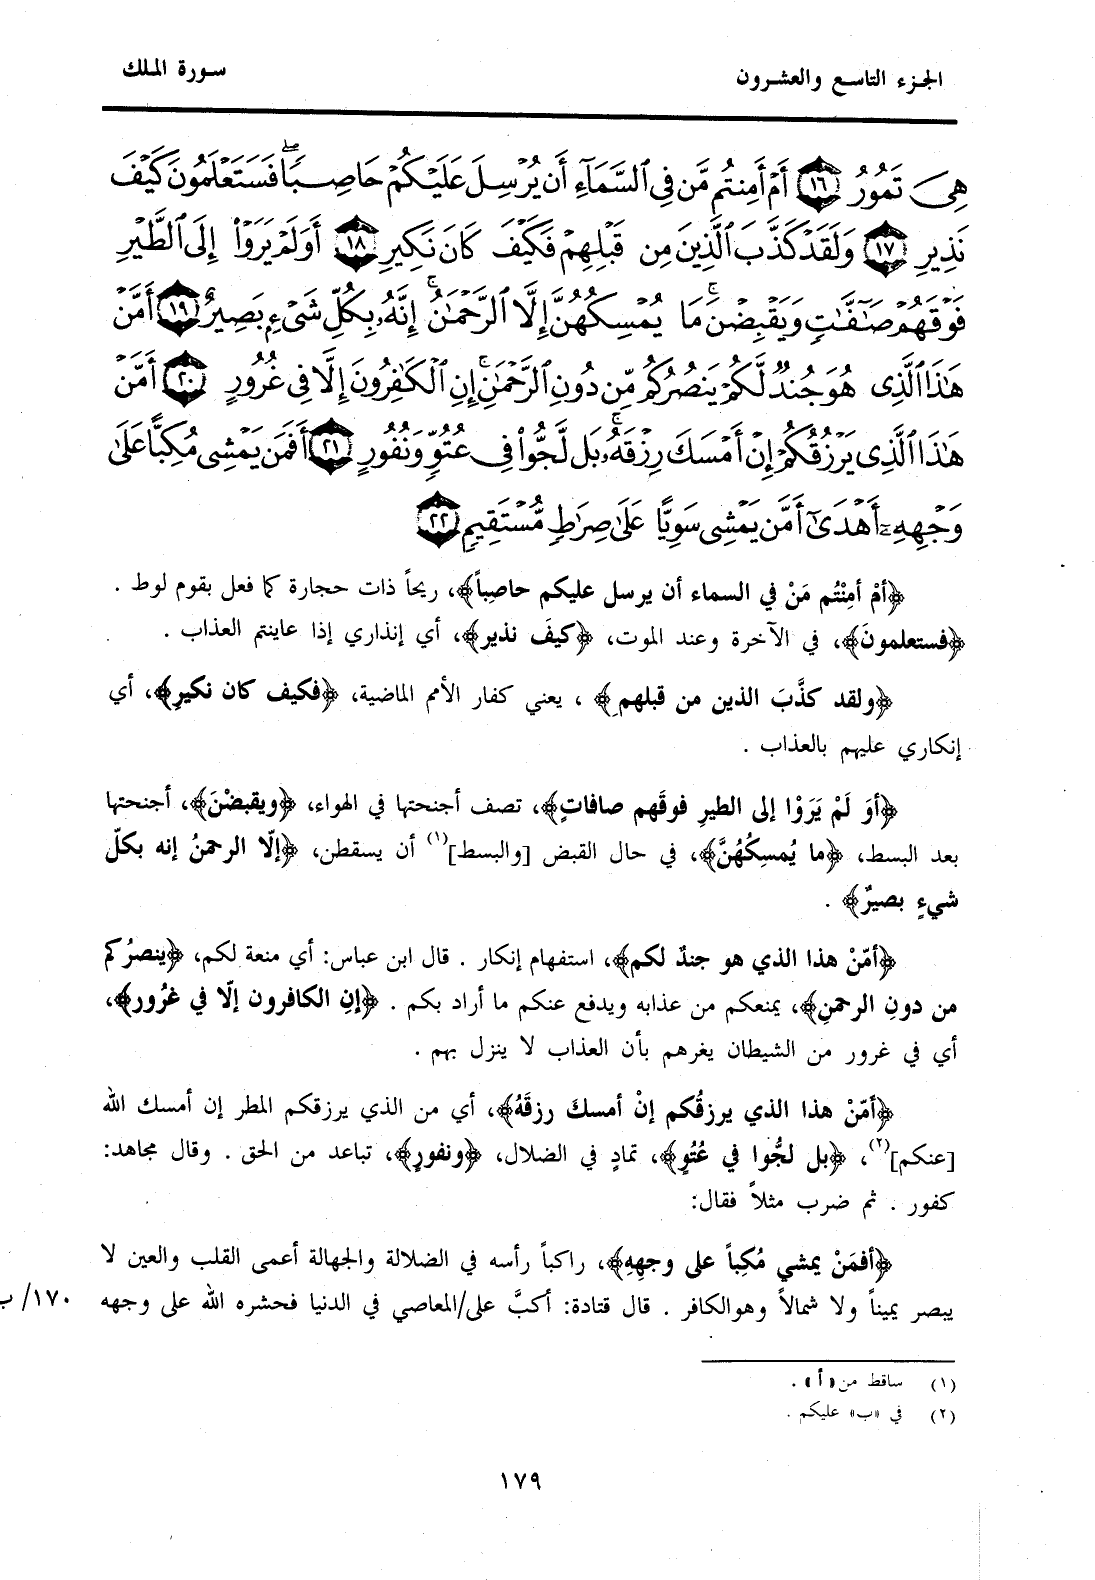 الجزء التاسع والعشرون
سورة الملك
هِىَ تَمُورُ ١٦ أَمْ أَمِنتُم مَّن فِى ٱلسَّمَآءِ أَن يُرْسِلَ عَلَيْكُمْ حَاصِبًا ۖ فَسَتَعْلَمُونَ كَيْفَ
نَذِيرِ ١٧ وَلَقَدْ كَذَّبَ ٱلَّذِينَ مِن قَبْلِهِمْ فَكَيْفَ كَانَ نَكِيرِ ١٨ أَوَلَمْ يَرَوْا۟ إِلَى ٱلطَّيْرِ
فَوْقَهُمْ صَٰٓفَّٰتٍ وَيَقْبِضْنَ ۚ مَا يُمْسِكُهُنَّ إِلَّا ٱلرَّحْمَٰنُ ۚ إِنَّهُۥ بِكُلِّ شَىْءٍۭ بَصِيرٌ ١٩ أَمَّنْ
هَٰذَا ٱلَّذِى هُوَ جُندٌ لَّكُمْ يَنصُرُكُم مِّن دُونِ ٱلرَّحْمَٰنِ ۚ إِنِ ٱلْكَٰفِرُونَ إِلَّا فِى غُرُورٍ ٢٠ أَمَّنْ
هَٰذَا ٱلَّذِى يَرْزُقُكُمْ إِنْ أَمْسَكَ رِزْقَهُۥ ۚ بَل لَّجُّوا۟ فِى عُتُوٍّ وَنُفُورٍ ٢١ أَفَمَن يَمْشِى مُكِبًّا عَلَىٰ
وَجْهِهِۦٓ أَهْدَىٰٓ أَمَّن يَمْشِى سَوِيًّا عَلَىٰ صِرَٰطٍ مُّسْتَقِيمٍ ٢٢
﴿أمْ أمِنْتُم مَنْ في السماء أن يرسل عليكم حاصِباً﴾، ريحاً ذات حجارة كما فعل بقوم لوط .
﴿فستعلمونَ﴾، في الآخرة وعند الموت، ﴿كيفَ نذير﴾، أي إنذاري إذا عاينتم العذاب .
﴿ولقد كذَّبَ الذين من قبلهم﴾ ، يعني كفار الأمم الماضية، ﴿فكيف كان نكيرِ﴾، أي
إنكاري عليهم بالعذاب .
﴿أوَ لَمْ يَرَوْا إلى الطيرِ فوقَهم صافاتٍ﴾، تصف أجنحتها في الهواء، ﴿ويقبضْنَ﴾، أجنحتها
بعد البسط، ﴿ما يُمسِكُهُنَّ﴾، في حال القبض [والبسط](١) أن يسقطن، ﴿إلّا الرحمنُ إنه بكلّ
شيءٍ بصيرٌ﴾ .
﴿أمّنْ هذا الذي هو جندٌ لكم﴾، استفهام إنكار . قال ابن عباس: أي منعة لكم، ﴿ينصرُكم
من دونِ الرحمنِ﴾، يمنعكم من عذابه ويدفع عنكم ما أراد بكم . ﴿إنِ الكافرون إلّا في غرُور﴾،
أي في غرور من الشيطان يغرهم بأن العذاب لا ينزل بهم .
﴿أمّنْ هذا الذي يرزقُكم إنْ أمسكَ رزقَهُ﴾، أي من الذي يرزقكم المطر إن أمسك الله
[عنكم](٢)، ﴿بل لجُّوا في عُتُوٍ﴾، تمادٍ في الضلال، ﴿ونفورٍ﴾، تباعد من الحق . وقال مجاهد:
كفور . ثم ضرب مثلاً فقال:
﴿أفمَنْ يمشي مُكِباً على وجهِهِ﴾، راكباً رأسه في الضلالة والجهالة أعمى القلب والعين لا
يبصر يميناً ولا شمالاً وهوالكافر . قال قتادة: أكبَّ على/المعاصي في الدنيا فحشره الله على وجهه ١٧٠/ب
(١) ساقط من «أ» .
(٢) في «ب» عليكم .
١٧٩